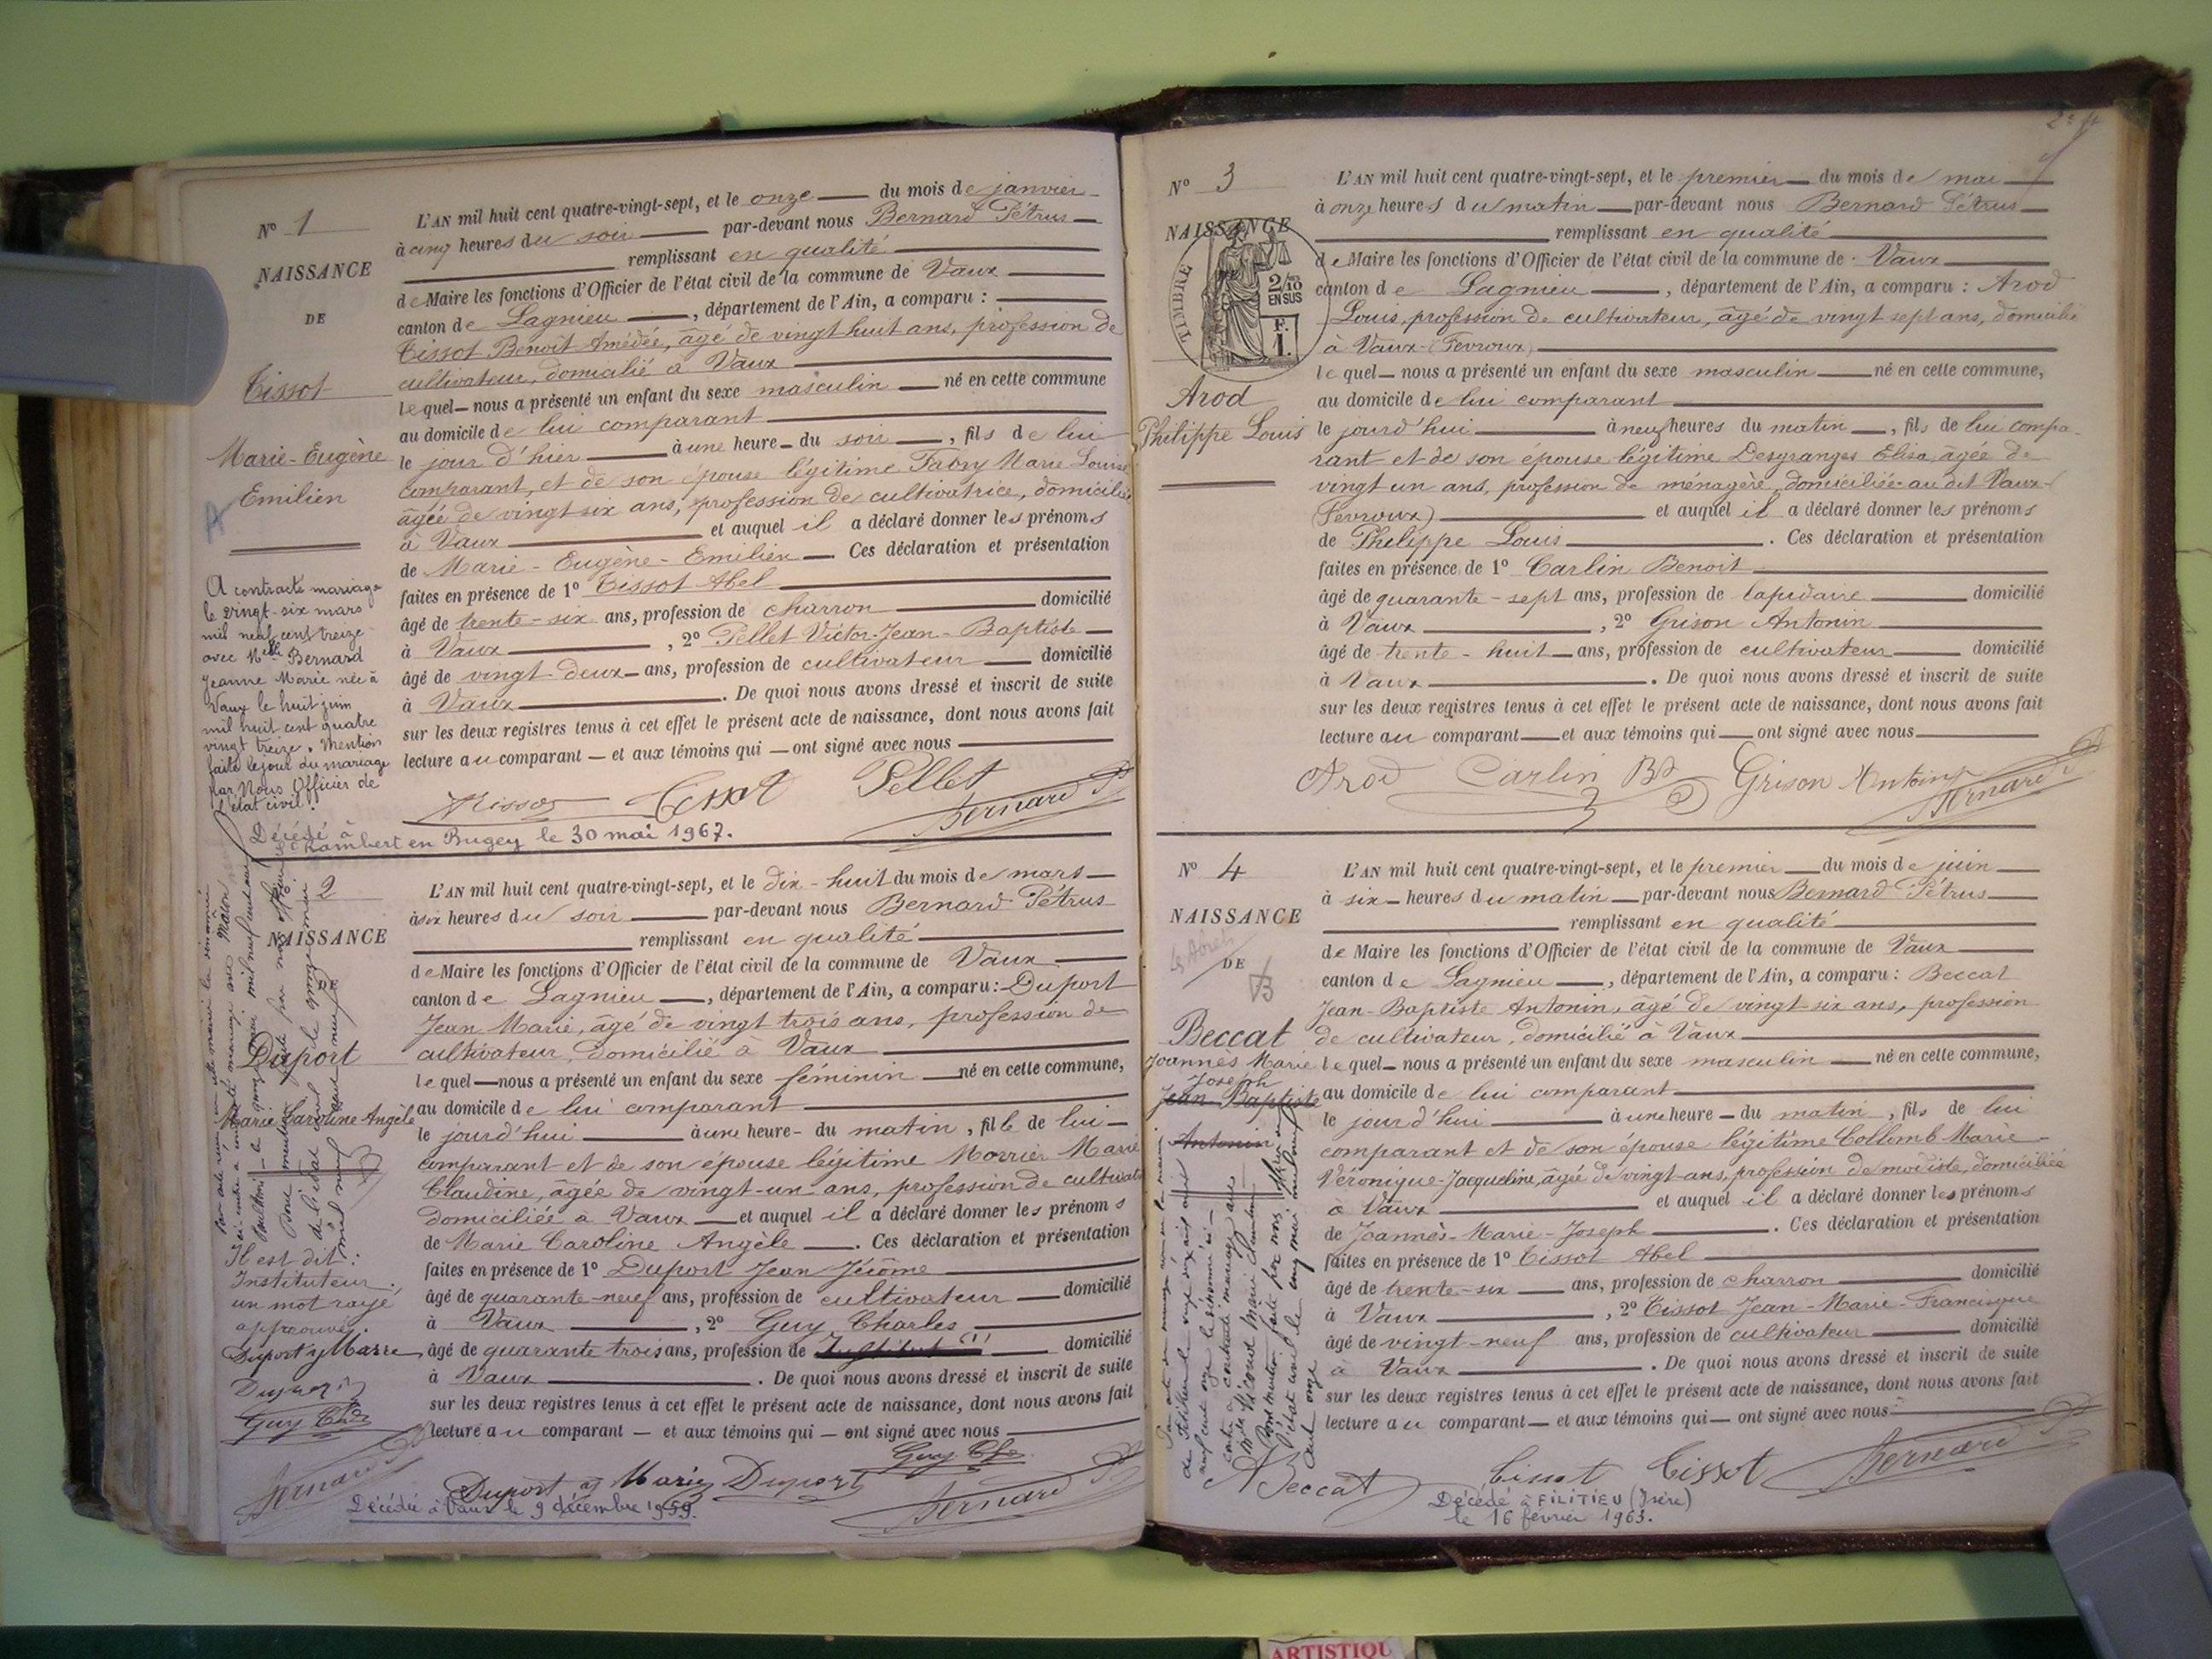 Nº 1
NAISSANCE
DE
Tissot
Marie-Eugène
Emilien
A contracté mariage
le vingt-six mars
mil neuf cent treize
avec Melle Bernard
Jeanne Marie née à
Vaux le huit juin
mil huit cent quatre
vingt treize. Mention
faite le jour du mariage
par Nous Officier de
l'état civil.
L'AN mil huit cent quatre-vingt-sept, et le onze du mois de janvier
à cinq heures du soir par-devant nous Bernard Pétrus
remplissant en qualité
de Maire les fonctions d'Officier de l'état civil de la commune de Vaux
canton de Lagnieu, département de l'Ain, a comparu :
Tissot Benoit Amédée, âgé de vingt huit ans, profession de
cultivateur, domicilié à Vaux
lequel nous a présenté un enfant du sexe masculin né en cette commune
au domicile de lui comparant
le jour d'hier à une heure du soir, fils de lui
comparant, et de son épouse légitime Fabry Marie Louise
âgée de vingt-six ans, profession de cultivatrice, domiciliée
à Vaux et auquel il a déclaré donner les prénoms
de Marie-Eugène-Emilien. Ces déclaration et présentation
faites en présence de 1º Tissot Abel
âgé de trente-six ans, profession de charron domicilié
à Vaux, 2º Pellet Victor-Jean-Baptiste
âgé de vingt-deux ans, profession de cultivateur domicilié
à Vaux. De quoi nous avons dressé et inscrit de suite
sur les deux registres tenus à cet effet le présent acte de naissance, dont nous avons fait
lecture au comparant et aux témoins qui ont signé avec nous
Tissot Tissot Pellet
Bernard P
Décédé à
St Rambert en Bugey le 30 mai 1967.
2
NAISSANCE
Duport
Marie Caroline Angèle
Il est dit:
Instituteur.
un mot rayé
approuvé.
Duport jn Marie
Duport
Guy Chs
Bernard
L'AN mil huit cent quatre-vingt-sept, et le dix-huit du mois de mars
à six heures du soir par-devant nous Bernard Pétrus
remplissant en qualité
de Maire les fonctions d'Officier de l'état civil de la commune de Vaux
canton de Lagnieu, département de l'Ain, a comparu: Duport
Jean Marie, âgé de vingt trois ans, profession de
cultivateur, domicilié à Vaux
lequel nous a présenté un enfant du sexe féminin né en cette commune,
au domicile de lui comparant
le jourd'hui à une heure du matin, fille de lui
comparant et de son épouse légitime Morrier Marie
Claudine, âgée de vingt-un ans, profession de cultivat
domiciliée à Vaux et auquel il a déclaré donner les prénoms
de Marie Caroline Angèle. Ces déclaration et présentation
faites en présence de 1º Duport Jean Jérôme
âgé de quarante-neuf ans, profession de cultivateur domicilié
à Vaux, 2º Guy Charles
âgé de quarante trois ans, profession de domicilié
à Vaux. De quoi nous avons dressé et inscrit de suite
sur les deux registres tenus à cet effet le présent acte de naissance, dont nous avons fait
lecture au comparant et aux témoins qui ont signé avec nous
Guy Chs
Duport jn Marie Duport
Bernard P
Décédée à Vaux le 9 décembre 1959.
Nº 3
NAISSANCE
TIMBRE
2/10
EN SUS
F.
1.
Arod
Philippe Louis
L'AN mil huit cent quatre-vingt-sept, et le premier du mois de mai
à onze heures du matin par-devant nous Bernard Pétrus
remplissant en qualité
de Maire les fonctions d'Officier de l'état civil de la commune de Vaux
canton de Lagnieu, département de l'Ain, a comparu : Arod
Louis, profession de cultivateur, âgé de vingt sept ans, domicilié
à Vaux (Fevroux)
lequel nous a présenté un enfant du sexe masculin né en cette commune,
au domicile de lui comparant
le jourd'hui à neuf heures du matin, fils de lui compa-
rant et de son épouse légitime Desgranges Elisa, âgée de
vingt un ans, profession de ménagère, domiciliée au dit Vaux-
(Fevroux) et auquel il a déclaré donner les prénoms
de Philippe Louis. Ces déclaration et présentation
faites en présence de 1º Carlin Benoit
âgé de quarante-sept ans, profession de lapidaire domicilié
à Vaux, 2º Grison Antonin
âgé de trente-huit ans, profession de cultivateur domicilié
à Vaux. De quoi nous avons dressé et inscrit de suite
sur les deux registres tenus à cet effet le présent acte de naissance, dont nous avons fait
lecture au comparant et aux témoins qui ont signé avec nous
Arod Carlin Bt Grison Antonin
Bernard P
Nº 4
NAISSANCE
DE
Beccat
Joannès Marie
Joseph
Jean Baptiste
Antonin
L'AN mil huit cent quatre-vingt-sept, et le premier du mois de juin
à six heures du matin par-devant nous Bernard Pétrus
remplissant en qualité
de Maire les fonctions d'Officier de l'état civil de la commune de Vaux
canton de Lagnieu, département de l'Ain, a comparu : Beccat
Jean-Baptiste Antonin, âgé de vingt-six ans, profession
de cultivateur, domicilié à Vaux
lequel nous a présenté un enfant du sexe masculin né en cette commune,
au domicile de lui comparant
le jourd'hui à une heure du matin, fils de lui
comparant et de son épouse légitime Collomb Marie
Véronique-Jacqueline, âgée de vingt ans, profession de modiste, domiciliée
à Vaux et auquel il a déclaré donner les prénoms
de Joannès-Marie-Joseph. Ces déclaration et présentation
faites en présence de 1º Tissot Abel
âgé de trente-six ans, profession de charron domicilié
à Vaux, 2º Tissot Jean-Marie-Francisque
âgé de vingt-neuf ans, profession de cultivateur domicilié
à Vaux. De quoi nous avons dressé et inscrit de suite
sur les deux registres tenus à cet effet le présent acte de naissance, dont nous avons fait
lecture au comparant et aux témoins qui ont signé avec nous
A Beccat Tissot Tissot Bernard P
Décédé à FILITIEU (Isère)
le 16 février 1963.
ARTISTIQU